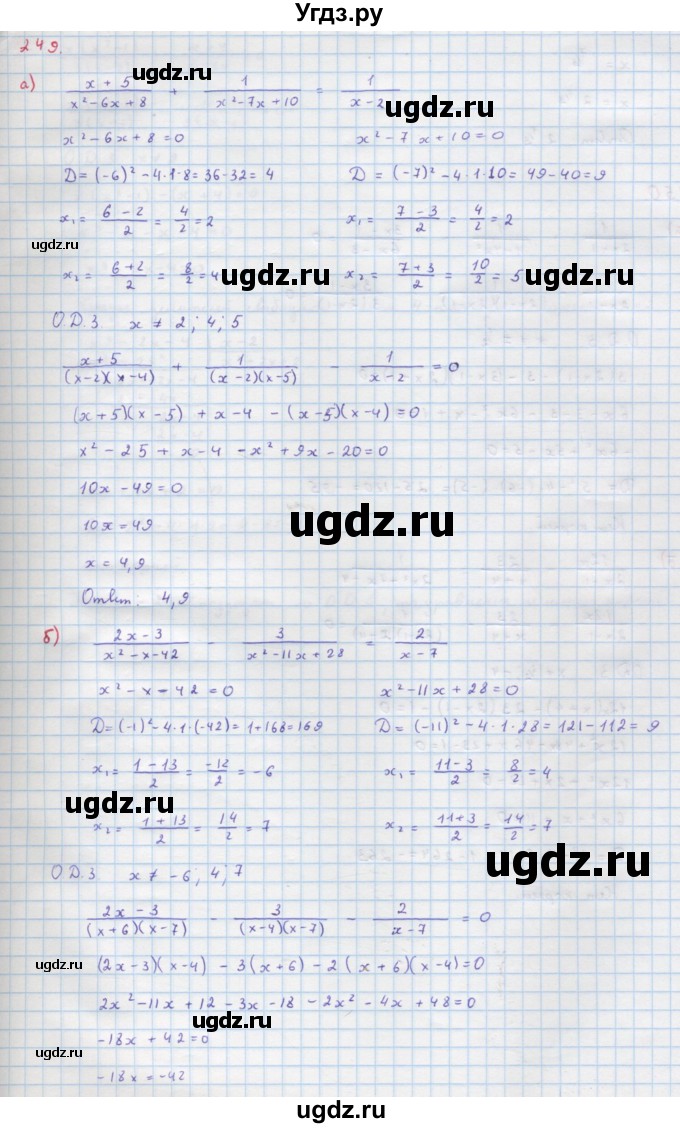 Угдз.ру
249.
а) (x + 5)/(x² - 6x + 8) + 1/(x² - 7x + 10) = 1/(x - 2)
ugdz.ru ugdz.ru
x² - 6x + 8 = 0 x² - 7x + 10 = 0
D = (-6)² - 4·1·8 = 36 - 32 = 4 D = (-7)² - 4·1·10 = 49 - 40 = 9
x₁ = (6 - 2)/2 = 4/2 = 2 x₁ = (7 - 3)/2 = 4/2 = 2
ugdz.ru
x₂ = (6 + 2)/2 = 8/2 = 4 x₂ = (7 + 3)/2 = 10/2 = 5
ugdz.ru ugdz.ru
О.Д.З. x ≠ 2; 4; 5
(x + 5)/((x - 2)(x - 4)) + 1/((x - 2)(x - 5)) - 1/(x - 2) = 0
(x + 5)(x - 5) + x - 4 - (x - 5)(x - 4) = 0
x² - 25 + x - 4 - x² + 9x - 20 = 0
10x - 49 = 0
10x = 49
ugdz.ru
x = 4,9
Ответ: 4,9
б) (2x - 3)/(x² - x - 42) - 3/(x² - 11x + 28) = 2/(x - 7)
x² - x - 42 = 0 x² - 11x + 28 = 0
D = (-1)² - 4·1·(-42) = 1 + 168 = 169 D = (-11)² - 4·1·28 = 121 - 112 = 9
x₁ = (1 - 13)/2 = -12/2 = -6 x₁ = (11 - 3)/2 = 8/2 = 4
ugdz.ru
x₂ = (1 + 13)/2 = 14/2 = 7 x₂ = (11 + 3)/2 = 14/2 = 7
О.Д.З. x ≠ -6; 4; 7
ugdz.ru
(2x - 3)/((x + 6)(x - 7)) - 3/((x - 4)(x - 7)) - 2/(x - 7) = 0
ugdz.ru
(2x - 3)(x - 4) - 3(x + 6) - 2(x + 6)(x - 4) = 0
2x² - 11x + 12 - 3x - 18 - 2x² - 4x + 48 = 0
ugdz.ru
-18x + 42 = 0
ugdz.ru
-18x = -42
ugdz.ru
ugdz.ru